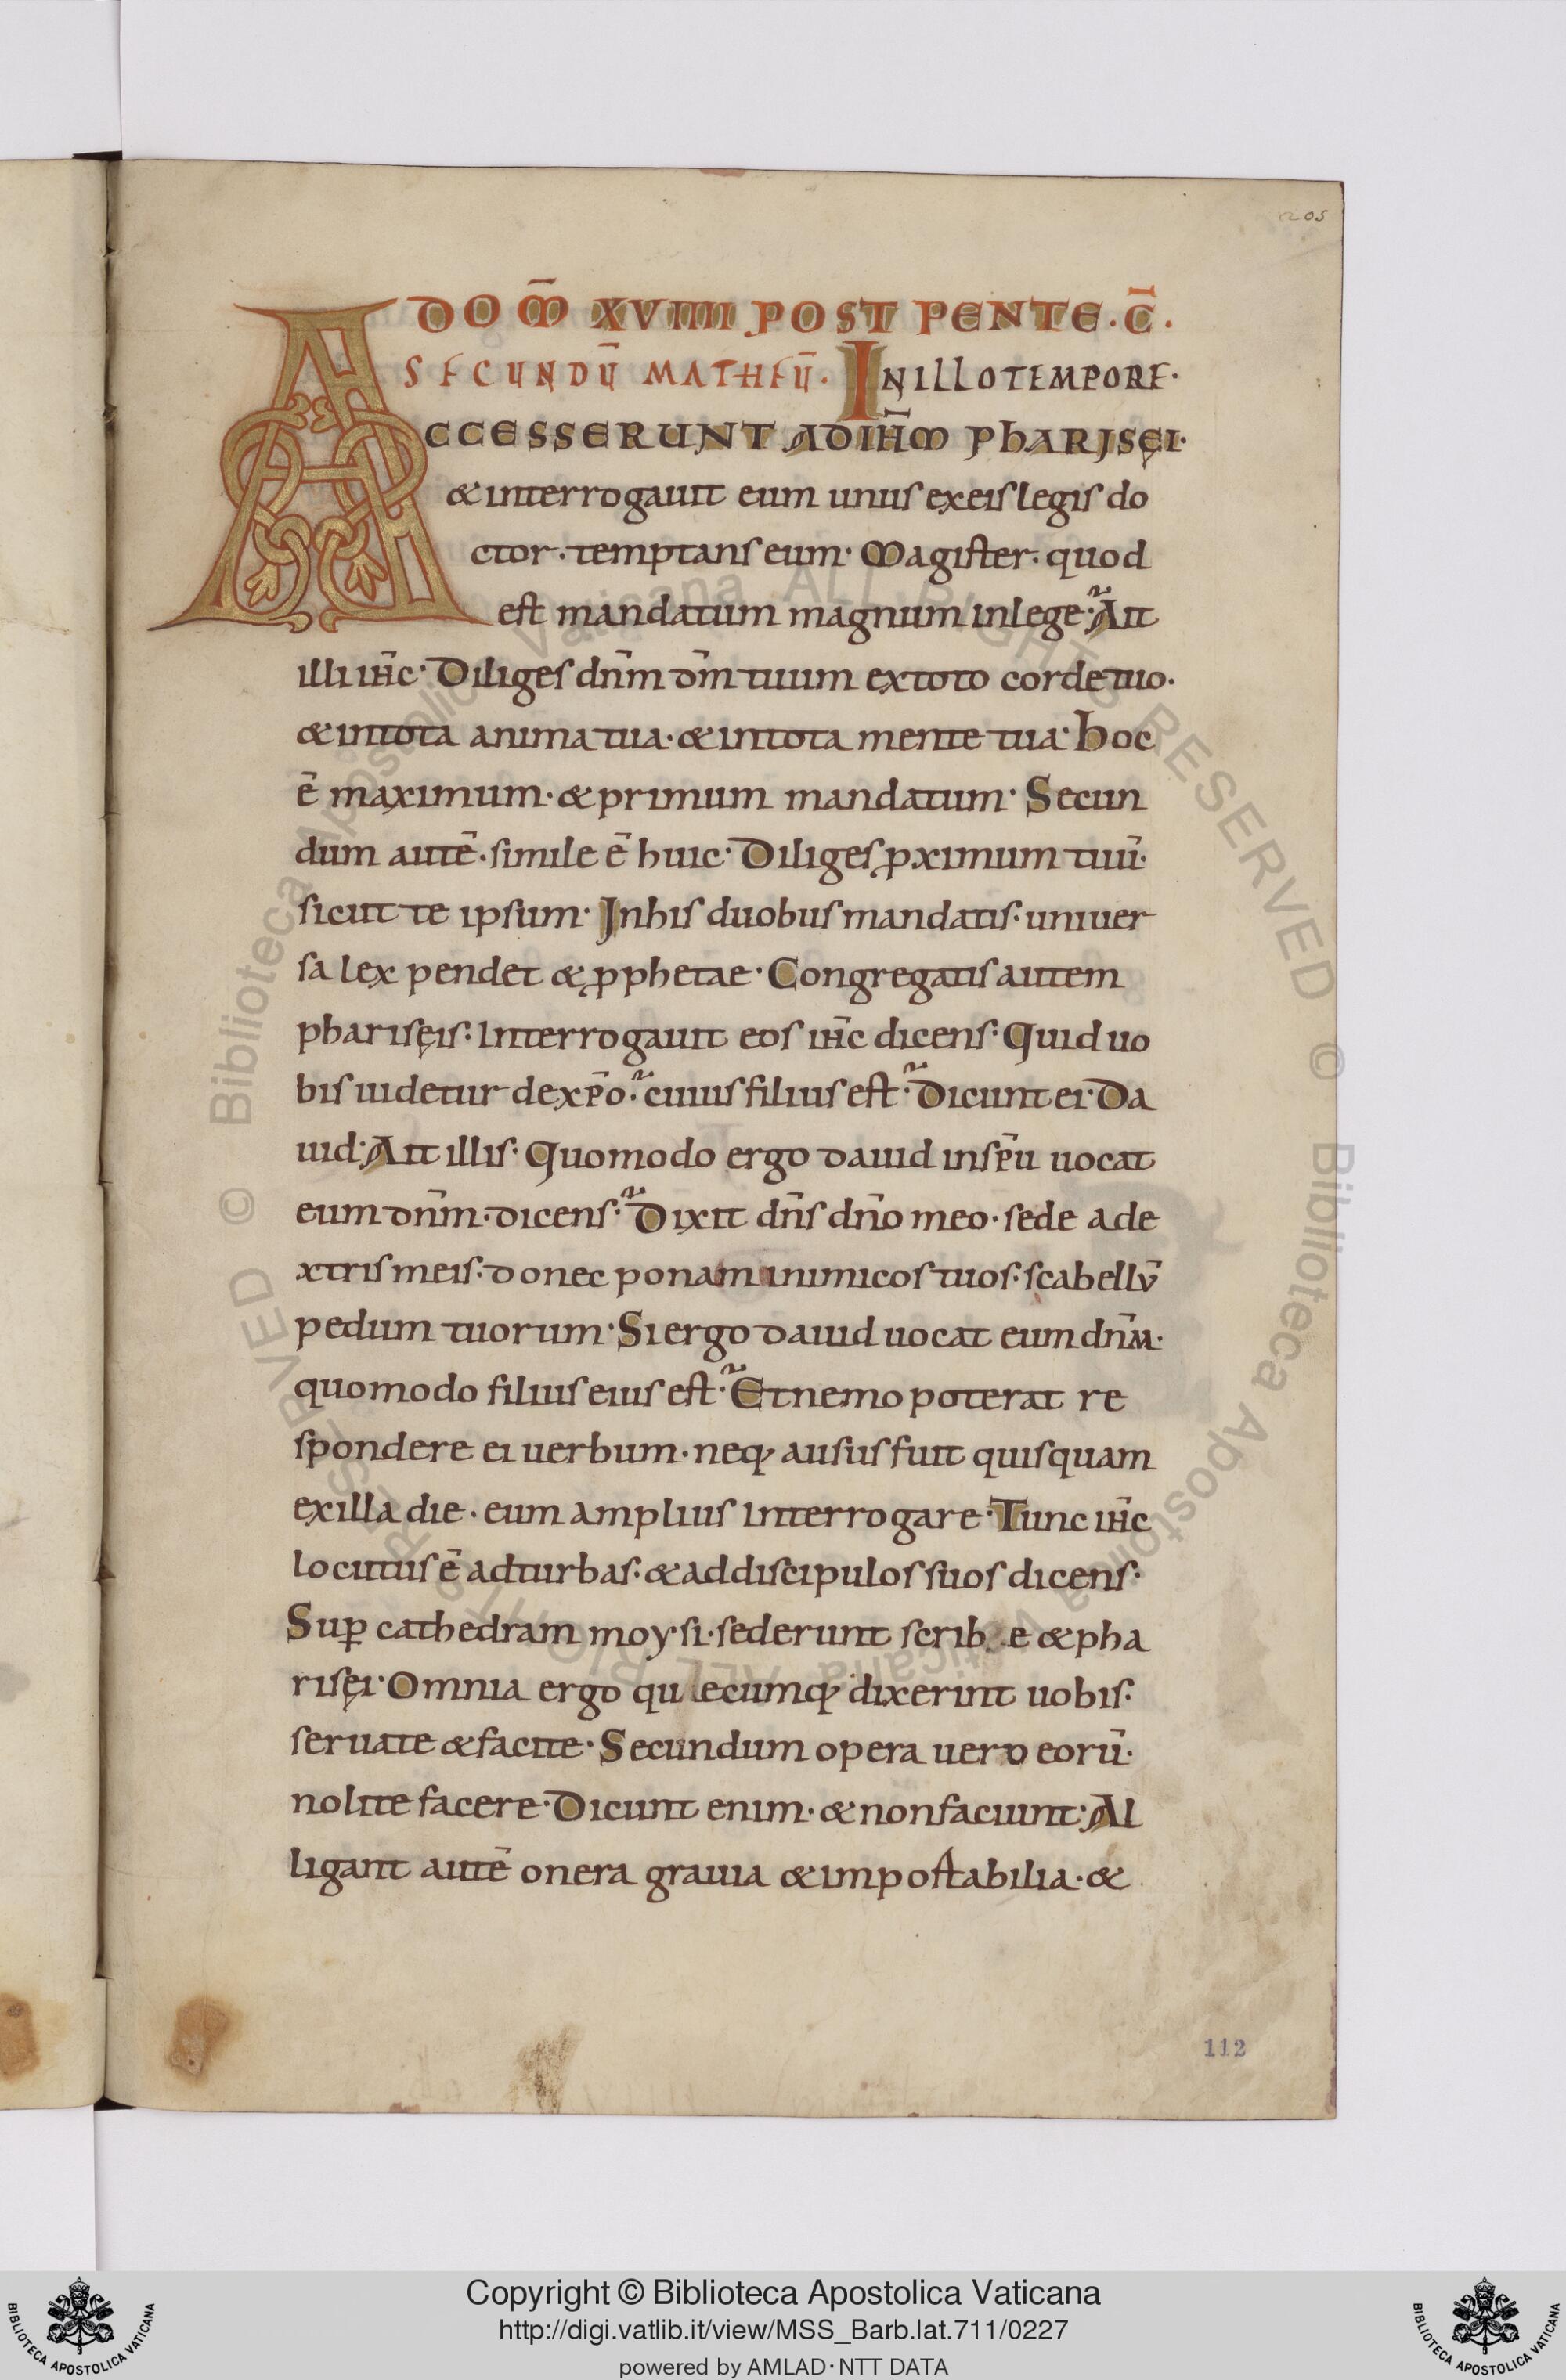 205
DOM̄ XVIIII POST PENTE·C̄·
SECUNDŪ MATHEŪ· IN ILLO TEMPORE·
ACCESSERUNT AD IH̄M PHARISĘI·
& interrogauit eum unus ex eis legis do
ctor· temptans eum· Magister· quod
est mandatum magnum in lege· Ait
illi ih̄c· Diliges dn̄m dm̄ tuum ex toto corde tuo·
& in tota anima tua· & in tota mente tua· Hoc
ē maximum· & primum mandatum· Secun
dum autē· simile ē huic· Diliges ꝓximum tuū·
sicut te ipsum· In his duobus mandatis· uniuer
sa lex pendet & ꝓphetae· Congregatis autem
pharisęis· Interrogauit eos ih̄c dicens· Quid uo
bis uidetur de xp̄o· cuius filius est· Dicunt ei· Da
uid· Ait illis· Quomodo ergo dauid in sp̄u uocat
eum dn̄m· dicens· Dixit dn̄s dn̄o meo· sede a de
xtris meis· donec ponam inimicos tuos· scabellv̄
pedum tuorum· Si ergo dauid uocat eum dn̄m·
quomodo filius eius est· Et nemo poterat re
spondere ei uerbum· neq; ausus fuit quisquam
ex illa die· eum amplius interrogare· Tunc ih̄c
locutus ē ad turbas· & ad discipulos suos dicens·
Suꝑ cathedram moysi· sederunt scrib e & pha
risęi· Omnia ergo qu ecumq; dixerint uobis·
seruate & facite· Secundum opera uero eorū·
nolite facere· Dicunt enim· & non faciunt· Al
ligant autē onera grauia & impostabilia· &
112
© Biblioteca Apostolica Vaticana ALL RIGHTS RESERVED © Biblioteca Apostolica Vaticana ALL RIGHTS RESERVED
Copyright © Biblioteca Apostolica Vaticana
http://digi.vatlib.it/view/MSS_Barb.lat.711/0227
powered by AMLAD·NTT DATA
BIBLIOTECA APOSTOLICA VATICANA
BIBLIOTECA APOSTOLICA VATICANA